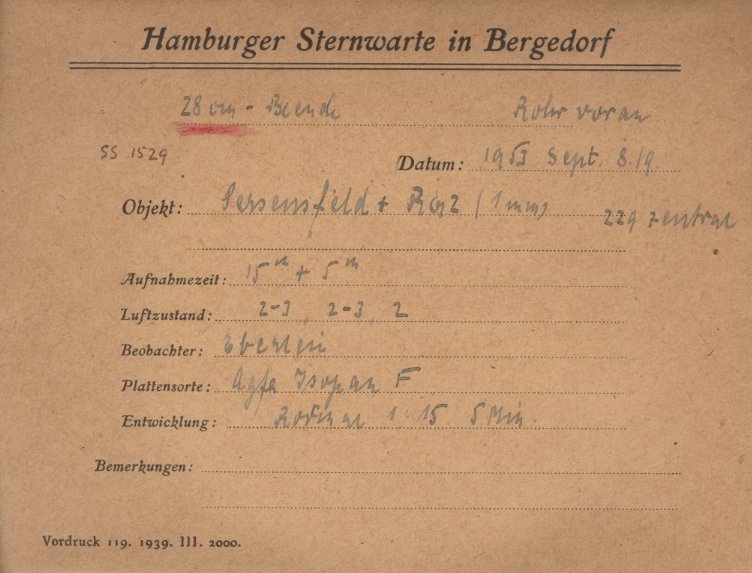 Hamburger Sternwarte in Bergedorf
28 cm - Blende Rohr voran
SS 1529
Datum: 1953 Sept. 8/9
Objekt: + (1 mm) 229 zentral
Aufnahmezeit: 15ᵐ + 5ᵐ
Luftzustand: 2-3 2-3 2
Beobachter:
Plattensorte: Agfa Isopan F
Entwicklung: Rodinal 1:15 5 Min.
Bemerkungen:
Vordruck 119. 1939. III. 2000.